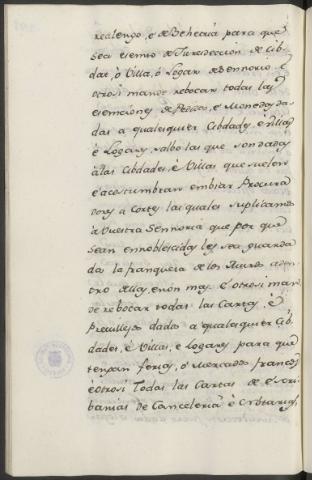 realengo, e de Behetria para que
sea esento de Jurisdiccion de Cib-
dat, ò Villa, ò Logar de Sennorio è
otrosi mande rebocar todas las
esenciones de Pedidos, è Monedas da-
das a qualesquier Cibdades, è Villas
è Logares, salbo las que son dadas
à las Cibdades, è Villas que suelen
è acostumbran embiar Procura
dores a Cortes las quales suplicamos
à Vuestra Sennoria que por que
sean ennoblescidas les sea guarda
da la franqueza de los Muros aden-
tro dellas, e non mas. è otrosi man-
de rebocar todas las Cartas, è
Previllejos dados a qualesquier Cib-
dades, è Villas, è Logares para que
tengan ferias, ò Mercados francos
è otrosi Todas las Cartas de Escri-
banias de Cancelerià è Notarias,